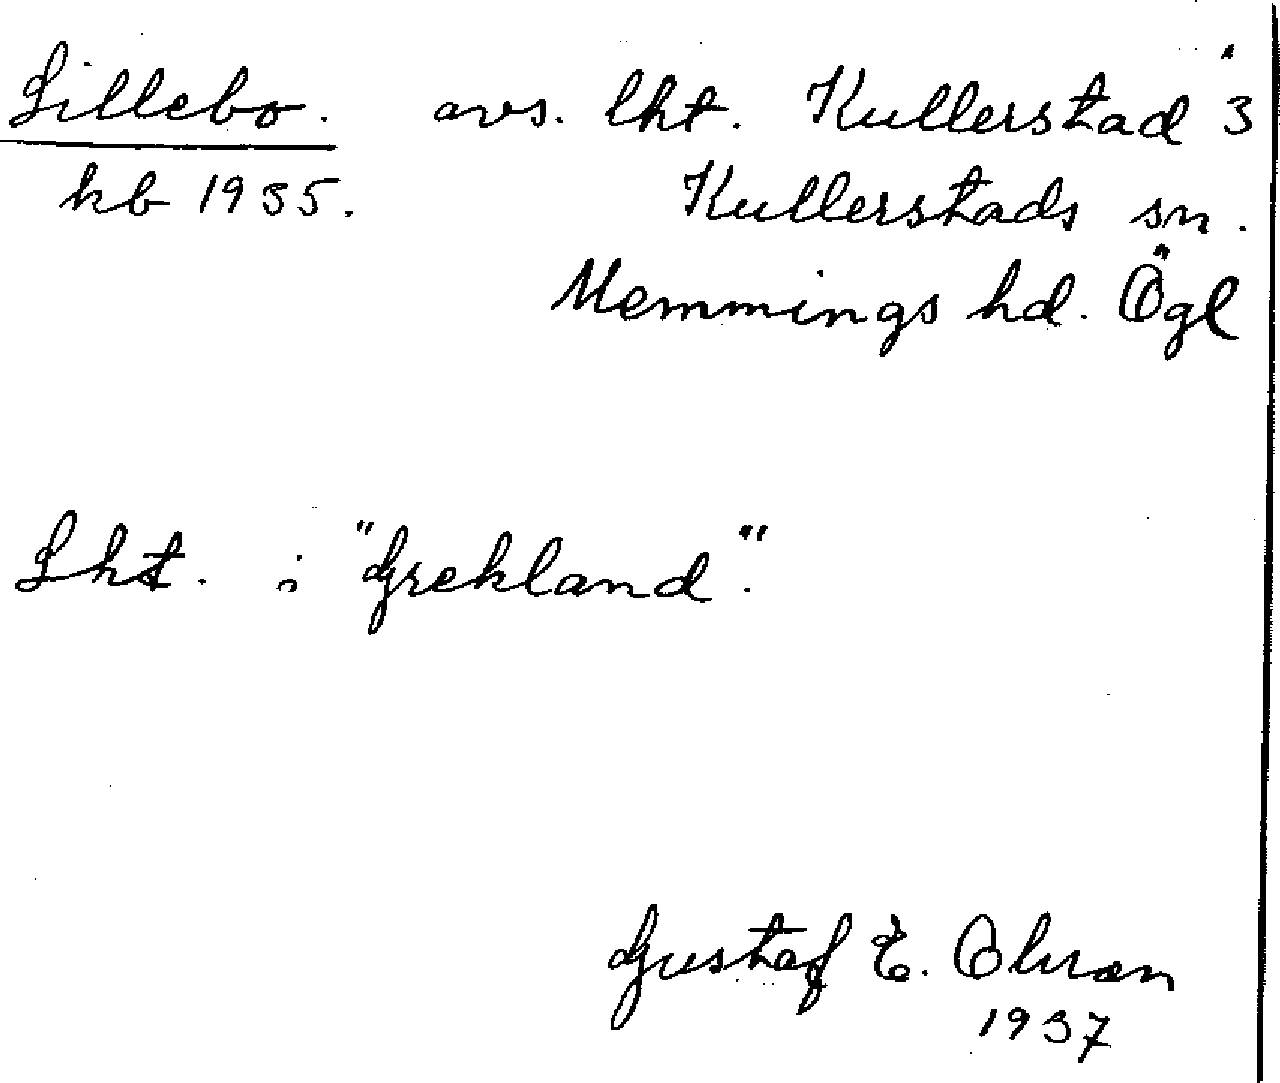 Lillebo. avs. lht. Kullerstad 3
kb 1935. Kullerstads sn.
Memmings hd. Ögl
Lht. i "Grekland".
Gustaf E.
1937